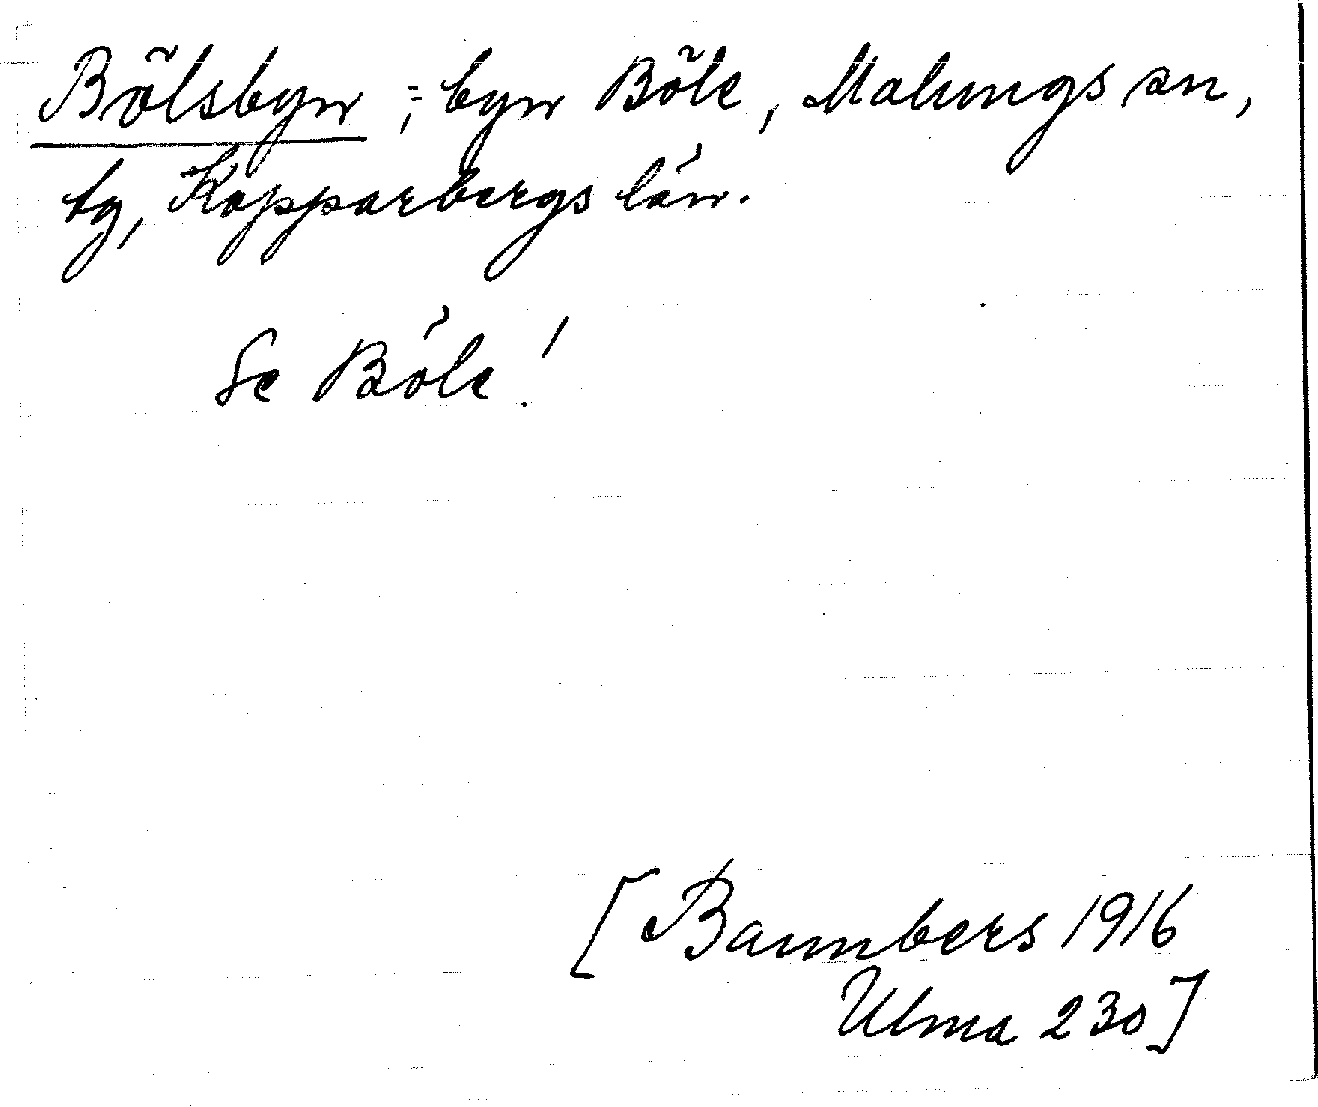 Bölsbyn ; byn Böle, Malungs sn,
tg, Kopparbergs län.
Se Böle!
[Baumbers 1916
Ulma 230]